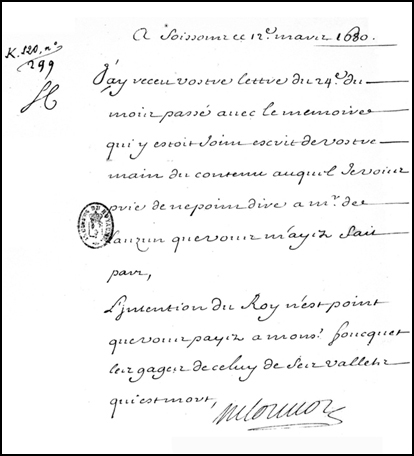 K. 120, n°
299
A Soissons ce 12e. mars 1680.
J'ay receu vostre lettre du 24e. du
mois passé avec le memoire
qui y estoit joint escrit de vostre
main du contenu auquel je vous
prie de ne point dire a mr. de
Lauzun que vous m'ayiz fait
part,
L'intention du Roy n'est point
que vous payiz a monsr. foucquet
les gages de celuy de ses valletz
qui est mort,